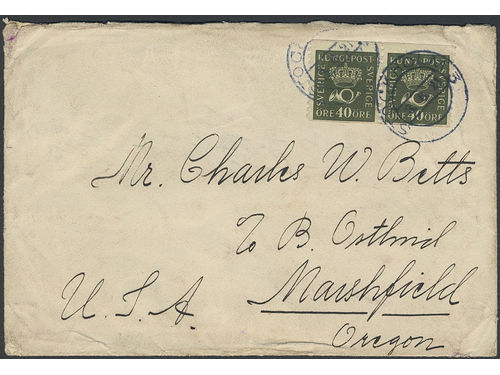 KUNGL.POST
SVERIGE SVERIGE
ÖRE 40 ÖRE
KUNGL.POST
SVERIGE SVERIGE
ÖRE 40 ÖRE
Mr. Charles W. Betts
To B. Ostlind
Marshfield
U. S. A.
Oregon